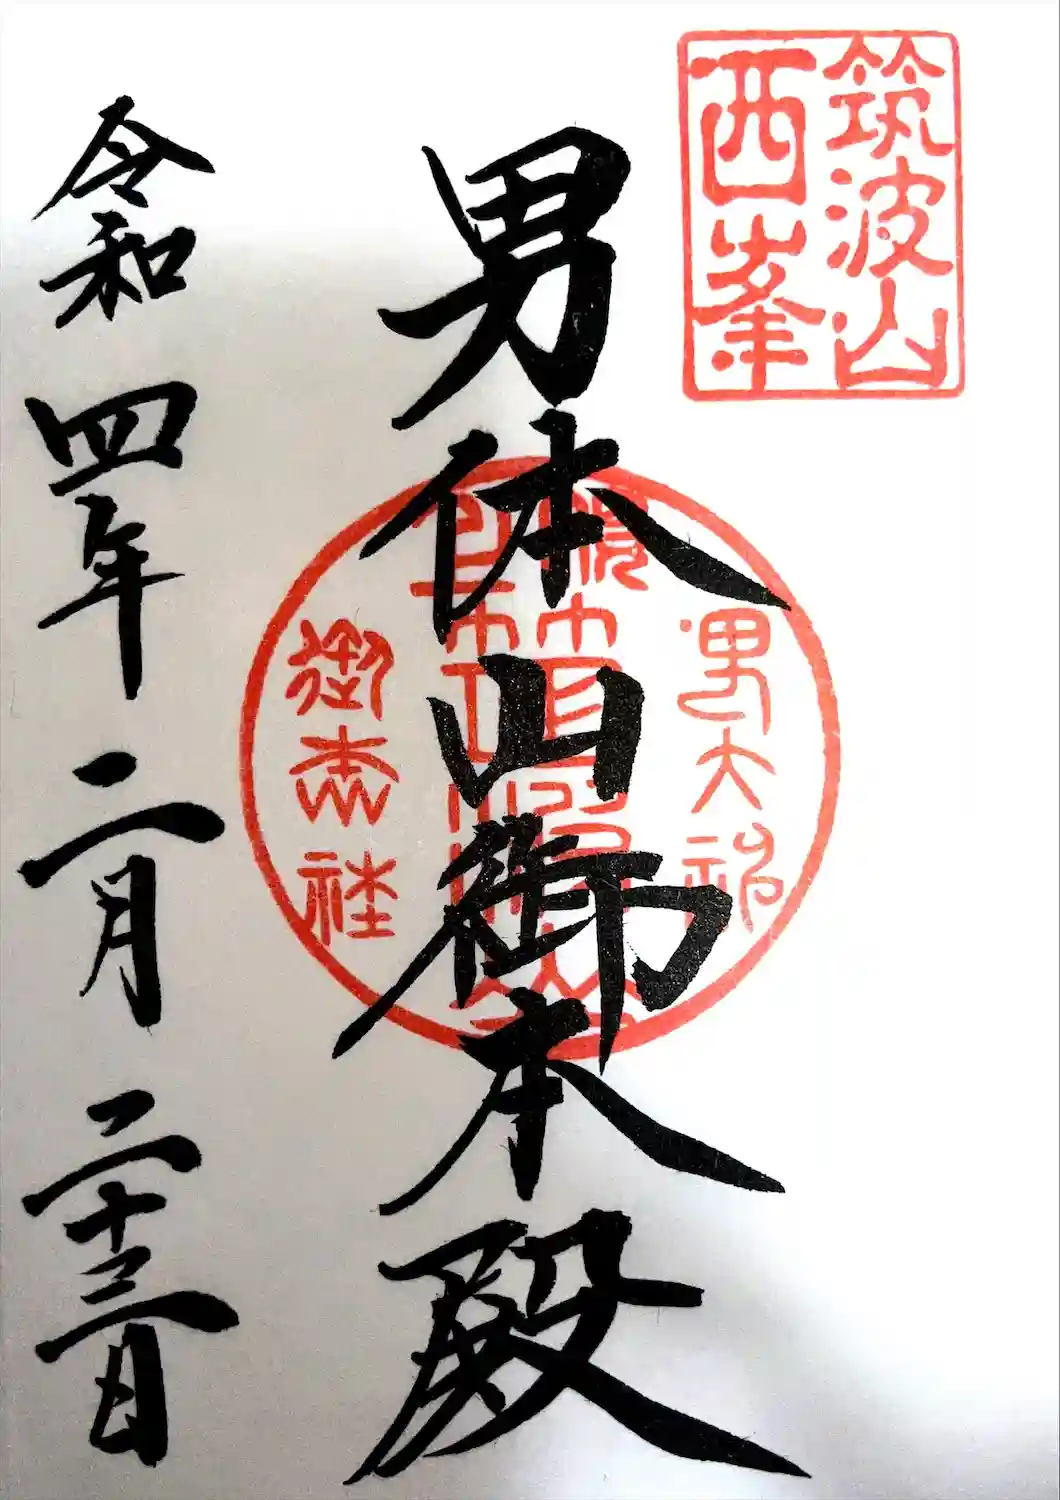 筑波山
西峯
男体山御本殿
令和四年二月二十三日
男大神
御本社